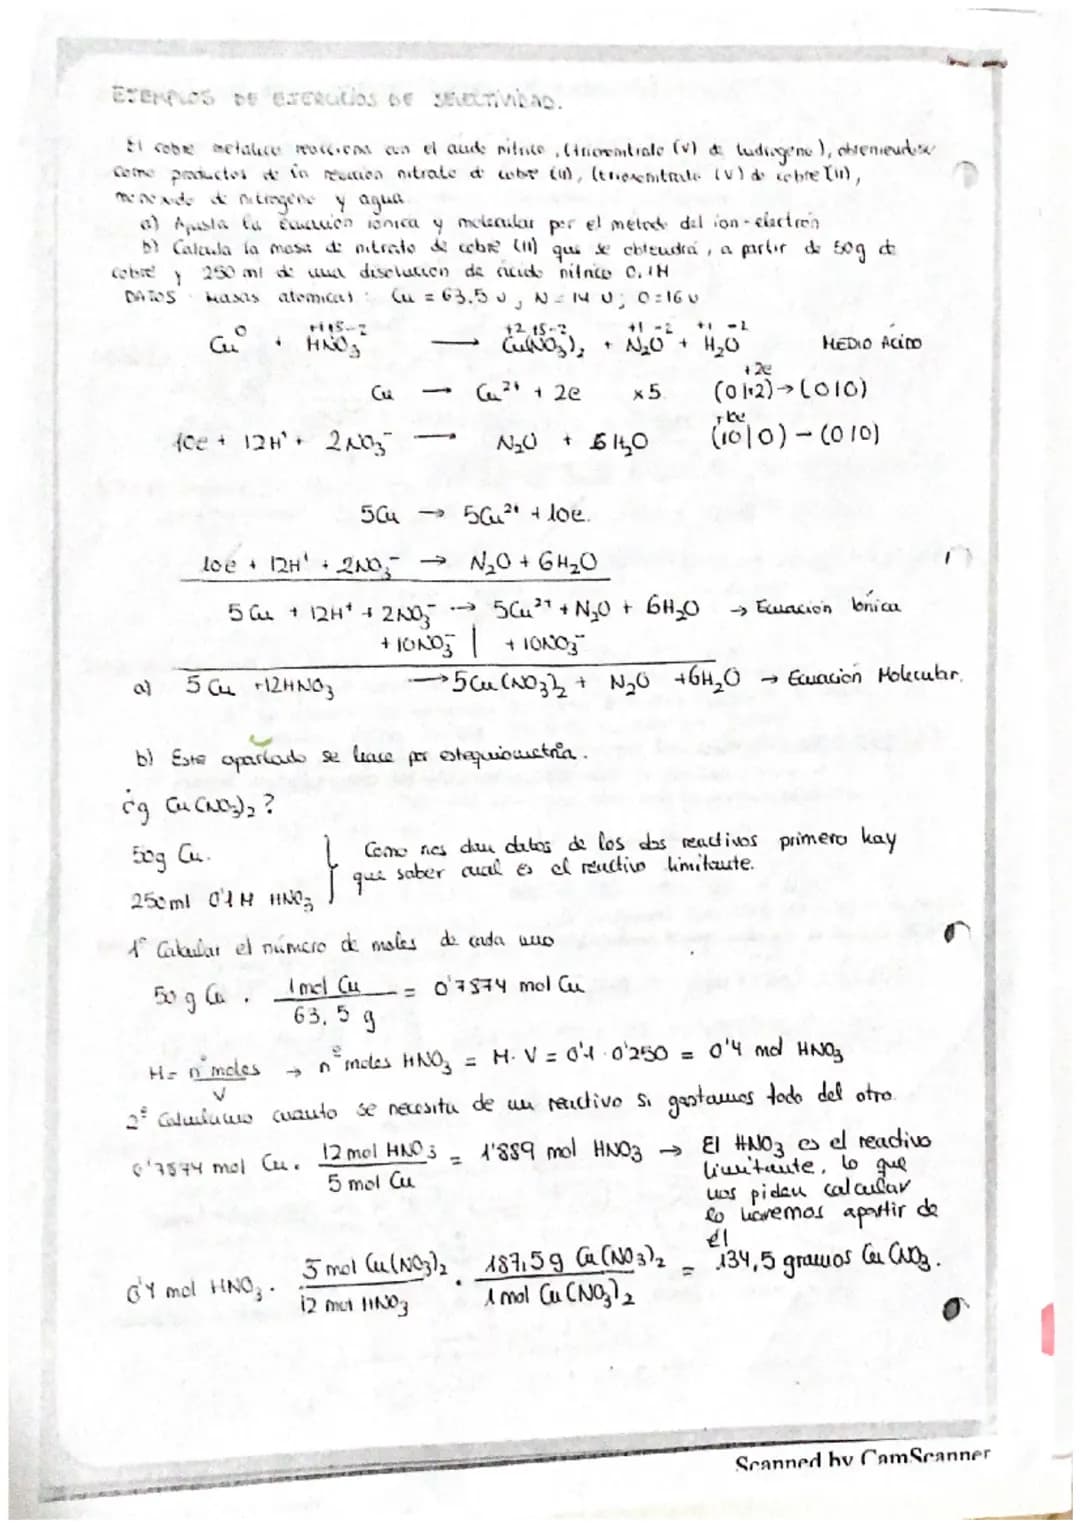 EJEMPLOS DE EJERCICIOS DE SELECTIVIDAD.
El cobre metalico reacciona con el acido nitrico, (trioxonitrato (V) de hidrogeno), obteniendose
como productos de la reacción nitrato de cobre (II), (trioxonitrato (V) de cobre (II),
monoxido de nitrogeno y agua.
a) Ajusta la Ecuación iónica y molecular por el metodo del ion-electrón
b) Calcula la masa de nitrato de cobre (II) que se obtendrá, a partir de 50g de
cobre y 250 ml de una disolución de acido nitrico 0,1M
DATOS Masas atomicas: Cu = 63.5 u, N = 14 u; O = 16 u
0 +1+5-2 +2 +5-2 +1 -2 +1 -2
Cu + HNO3 → Cu(NO3)2 + N2O + H2O MEDIO ÁCIDO
+2e
Cu → Cu2+ + 2e x5 (0|+2) → (0|0)
10e + 12H+ + 2NO3- → N2O + 6H2O (10|0) - (0|0)
5Cu → 5Cu2+ + 10e.
10e + 12H+ + 2NO3- → N2O + 6H2O
5Cu + 12H+ + 2NO3- → 5Cu2+ + N2O + 6H2O → Ecuación Iónica
+ 10NO3- | + 10NO3-
a) 5Cu + 12HNO3 → 5Cu(NO3)2 + N2O + 6H2O → Ecuación Molecular.
b) Este apartado se hace por estequiometría.
¿g Cu(NO3)2?
50g Cu.
250ml 0'1M HNO3
Como nos dan datos de los dos reactivos primero hay
que saber cual es el reactivo limitante.
1º Calcular el número de moles de cada uno
50 g Cu . 1 mol Cu / 63,5 g = 0'7874 mol Cu
M = nº moles / V → nº moles HNO3 = M·V = 0'1·0'250 = 0'4 mol HNO3
2º Calculamos cuanto se necesita de un reactivo si gastamos todo del otro.
0'7874 mol Cu . 12 mol HNO3 / 5 mol Cu = 1'889 mol HNO3 → El HNO3 es el reactivo
limitante, lo que
nos piden calcular
lo haremos apartir de
él
0'4 mol HNO3 . 5 mol Cu(NO3)2 / 12 mol HNO3 . 187,5g Cu(NO3)2 / 1 mol Cu(NO3)2 = 134,5 gramos Cu(NO3.
Scanned by CamScanner